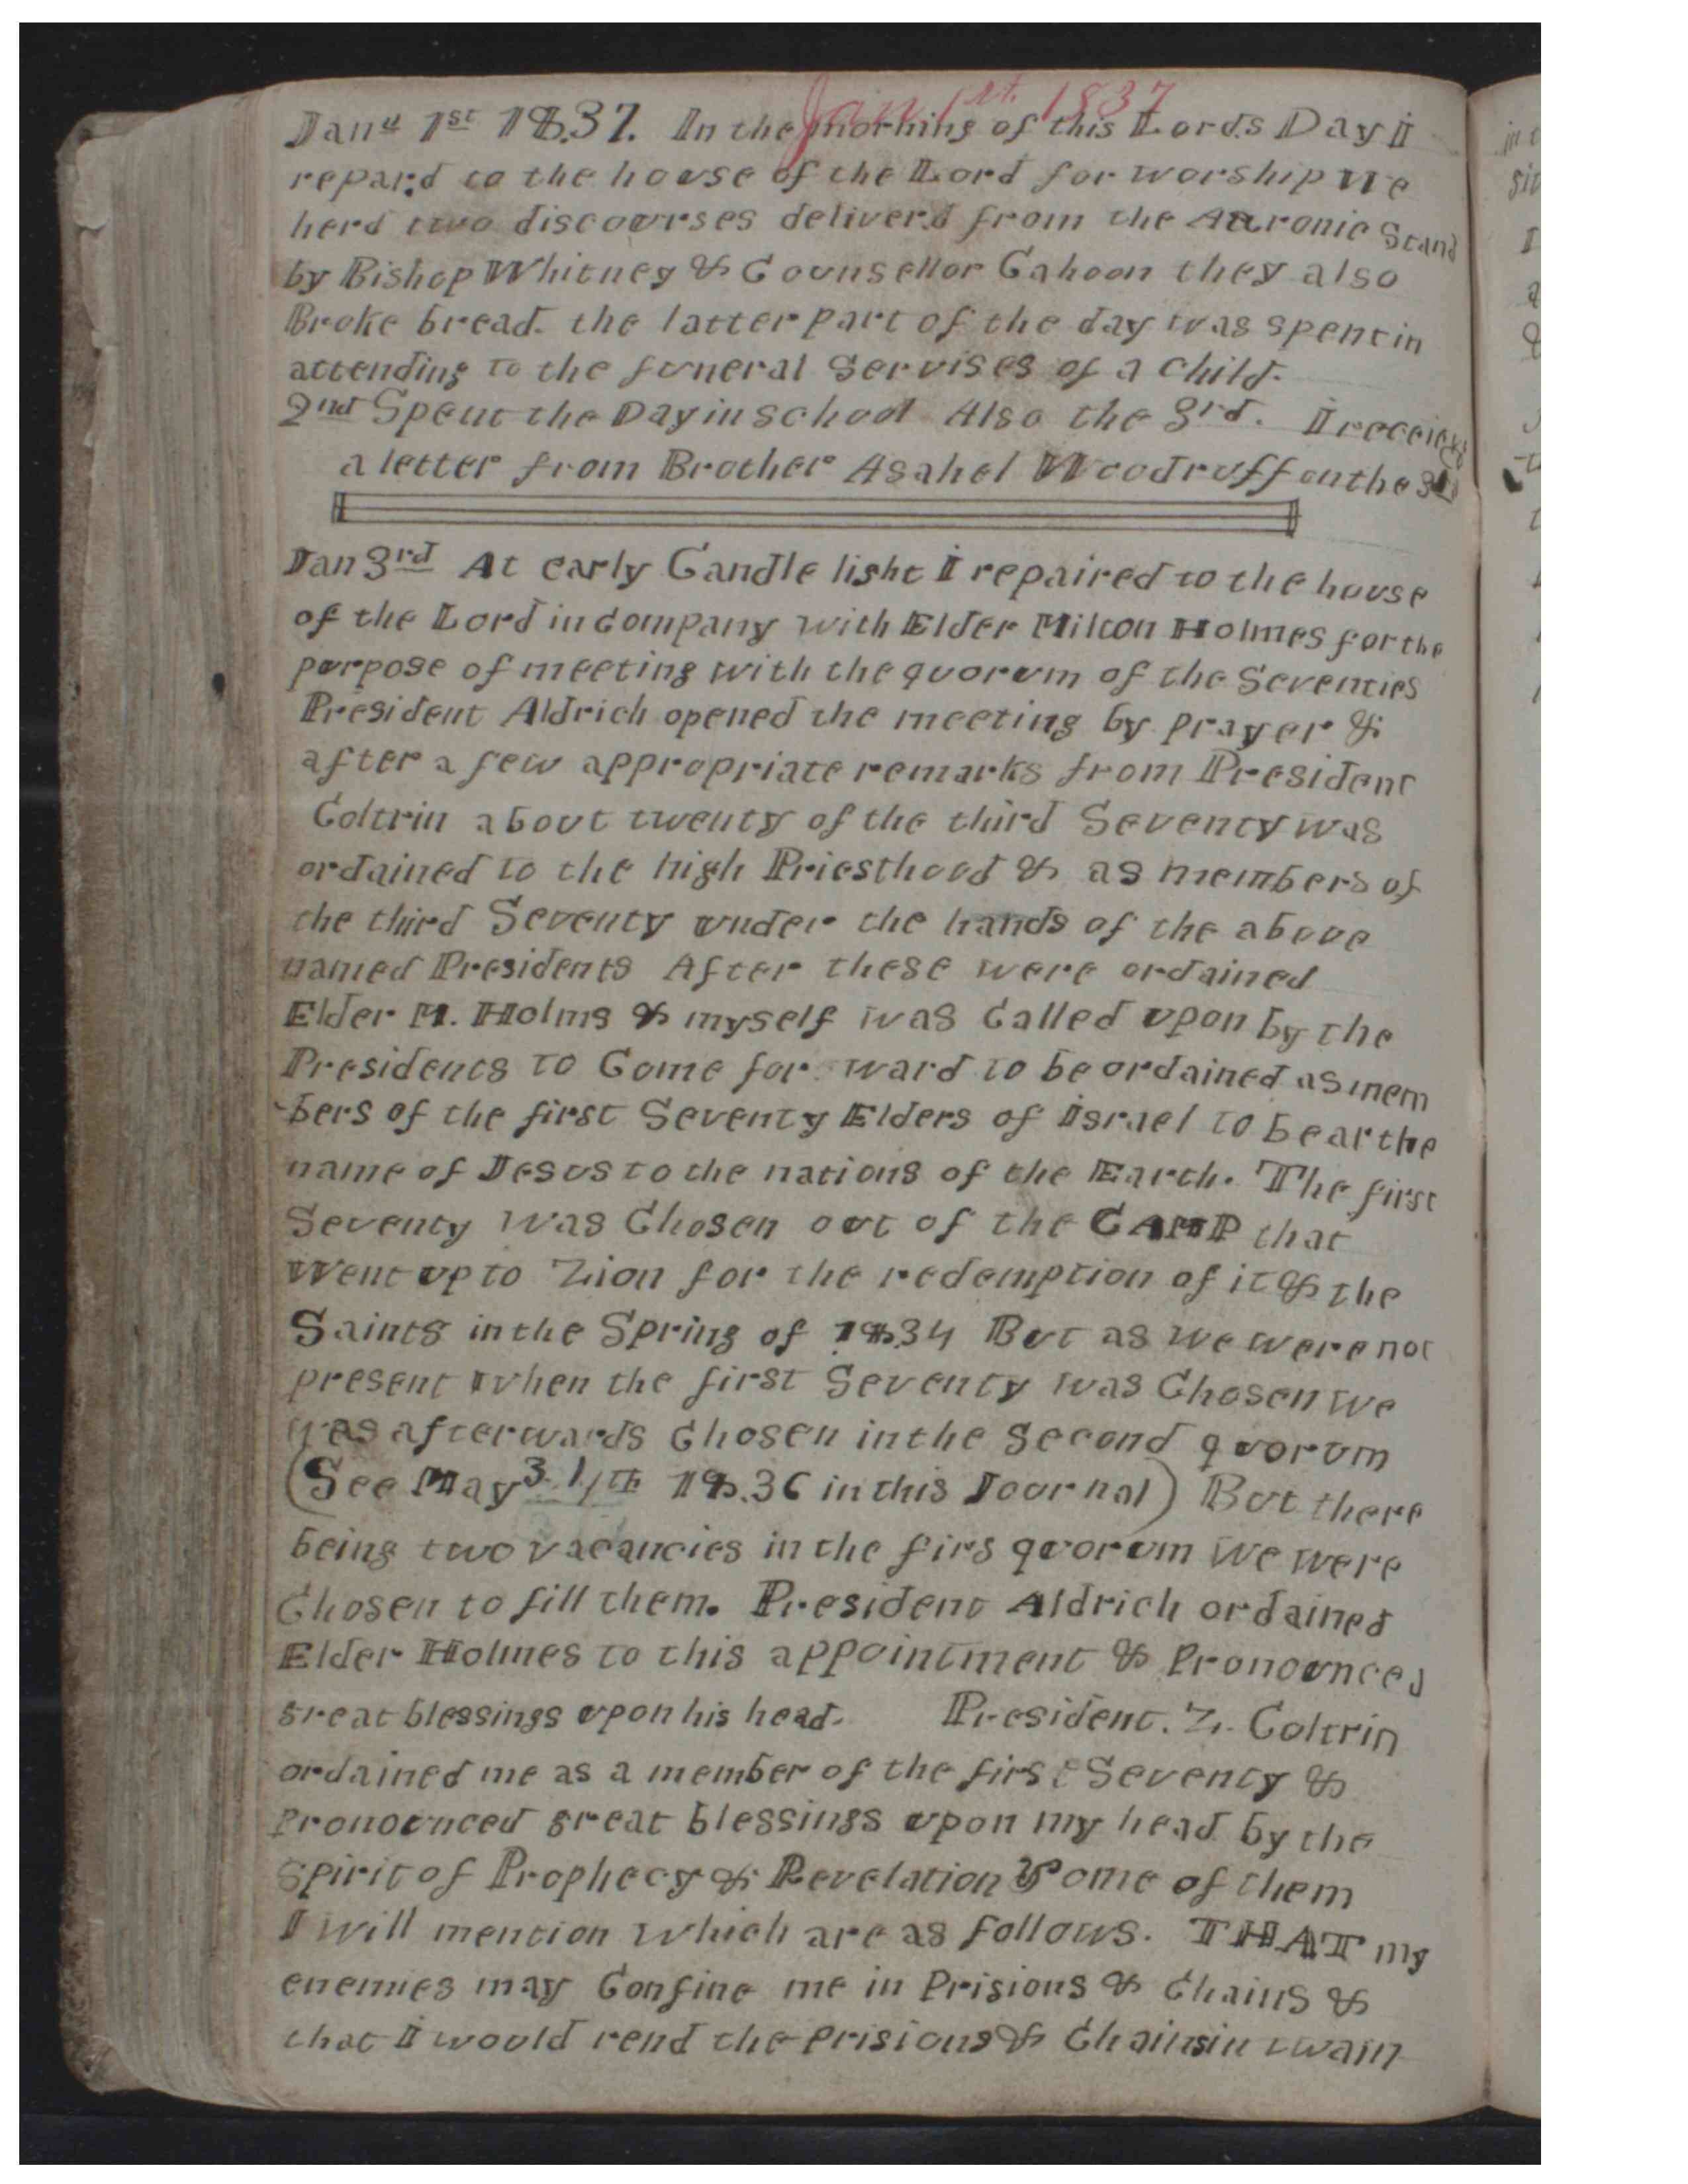 Jan 1st. 1837
Jany 1st 1837. In the morning of this Lords Day I
repard to the house of the Lord for worship We
herd two discourses deliverd from the Aaronic Stand
by Bishop Whitney & Counsellor Cahoon they also
Broke bread. the latter part of the day was spent in
attending to the funeral Servises of a child.
2nd Spent the Day in school Also the 3rd. I received
a letter from Brother Asahel Woodruff on the 3d
Jan 3rd At early Candle light I repaired to the house
of the Lord in Company with Elder Milton Holmes for the
purpose of meeting with the quorum of the Seventies
President Aldrich opened the meeting by prayer &
after a few appropriate remarks from President
Coltrin about twenty of the third Seventy was
ordained to the high Priesthood & as members of
the third Seventy under the hands of the above
named Presidents After these were ordained
Elder M. Holms & myself was Called upon by the
Presidents to Come for ward to be ordained as mem
-bers of the first Seventy Elders of Israel to bear the
name of Jesus to the nations of the Earth. The first
Seventy was Chosen out of the CAMP that
went up to Zion for the redemption of it & the
Saints in the Spring of 1834 But as we were not
present when the first Seventy was Chosen we
was afterwards Chosen in the Second quorum
(See May 31th 1836 in this Journal) But there
being two vacancies in the firs quorum We were
Chosen to fill them. President Aldrich ordained
Elder Holmes to this appointment & Pronounced
great blessings upon his head. President. Z. Coltrin
ordained me as a member of the first Seventy &
Pronounced great blessings upon my head by the
spirit of Prophecy & Revelation Some of them
I will mention which are as follows. THAT my
enemies may Confine me in Prisions & Chains &
that I would rend the prisions & Chains in twain